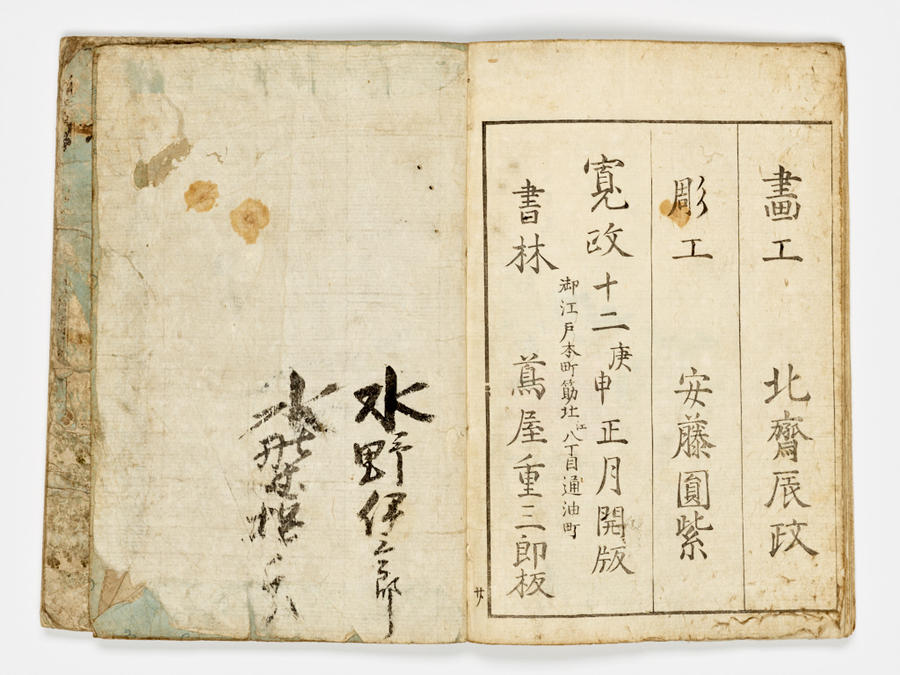 畫工 北齋辰政
彫工 安藤圓紫
寛政十二庚申正月開版
御江戸本町筋北江八丁目通油町
書林 蔦屋重三郎板
廿
水野伊三郎
水